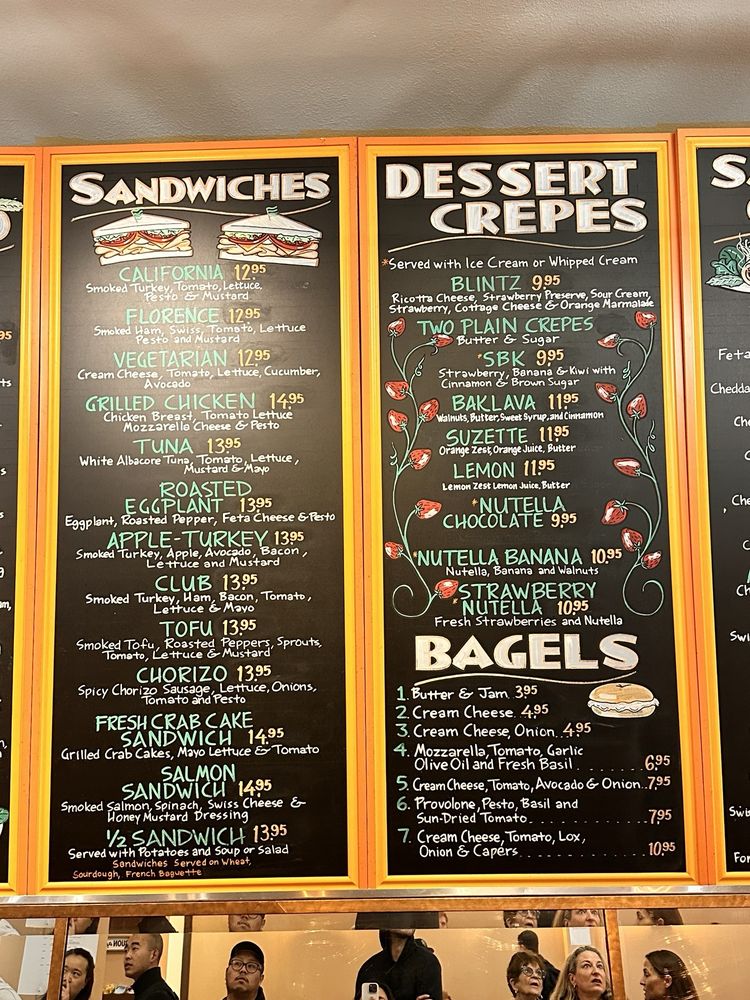 SANDWICHES
CALIFORNIA 12.95
Smoked Turkey, Tomato, Lettuce,
Pesto & Mustard
FLORENCE 12.95
Smoked Ham, Swiss, Tomato, Lettuce
Pesto and Mustard
VEGETARIAN 12.95
Cream Cheese, Tomato, Lettuce, Cucumber,
Avocado
GRILLED CHICKEN 14.95
Chicken Breast, Tomato Lettuce
Mozzarella Cheese & Pesto
TUNA 13.95
White Albacore Tuna, Tomato, Lettuce,
Mustard & Mayo
ROASTED
EGGPLANT 13.95
Eggplant, Roasted Pepper, Feta Cheese & Pesto
APPLE-TURKEY 13.95
Smoked Turkey, Apple, Avocado, Bacon,
Lettuce and Mustard
CLUB 13.95
Smoked Turkey, Ham, Bacon, Tomato,
Lettuce & Mayo
TOFU 13.95
Smoked Tofu, Roasted Peppers, Sprouts,
Tomato, Lettuce & Mustard
CHORIZO 13.95
Spicy Chorizo Sausage, Lettuce, Onions,
Tomato and Pesto
FRESH CRAB CAKE
SANDWICH 14.95
Grilled Crab Cakes, Mayo Lettuce & Tomato
SALMON
SANDWICH 14.95
Smoked Salmon, Spinach, Swiss Cheese &
Honey Mustard Dressing
1/2 SANDWICH 13.95
Served with Potatoes and Soup or Salad
Sandwiches Served on Wheat,
Sourdough, French Baguette
DESSERT
CREPES
*Served with Ice Cream or Whipped Cream
BLINTZ 9.95
Ricotta Cheese, Strawberry Preserve, Sour Cream,
Strawberry, Cottage Cheese & Orange Marmalade
TWO PLAIN CREPES
Butter & Sugar
*SBK 9.95
Strawberry, Banana & Kiwi with
Cinnamon & Brown Sugar
BAKLAVA 11.95
Walnuts, Butter, Sweet Syrup, and Cinnamon
SUZETTE 11.95
Orange Zest, Orange Juice, Butter
LEMON 11.95
Lemon Zest Lemon Juice, Butter
*NUTELLA
CHOCOLATE 9.95
*NUTELLA BANANA 10.95
Nutella, Banana and Walnuts
*STRAWBERRY
NUTELLA 10.95
Fresh Strawberries and Nutella
BAGELS
1. Butter & Jam. 3.95
2. Cream Cheese. 4.95
3. Cream Cheese, Onion. 4.95
4. Mozzarella, Tomato, Garlic
Olive Oil and Fresh Basil . . . . . . . . 6.95
5. Cream Cheese, Tomato, Avocado & Onion.. 7.95
6. Provolone, Pesto, Basil and
Sun-Dried Tomato . . . . . . . . . . . . 7.95
7. Cream Cheese, Tomato, Lox,
Onion & Capers. . . . . . . . . . . . . 10.95